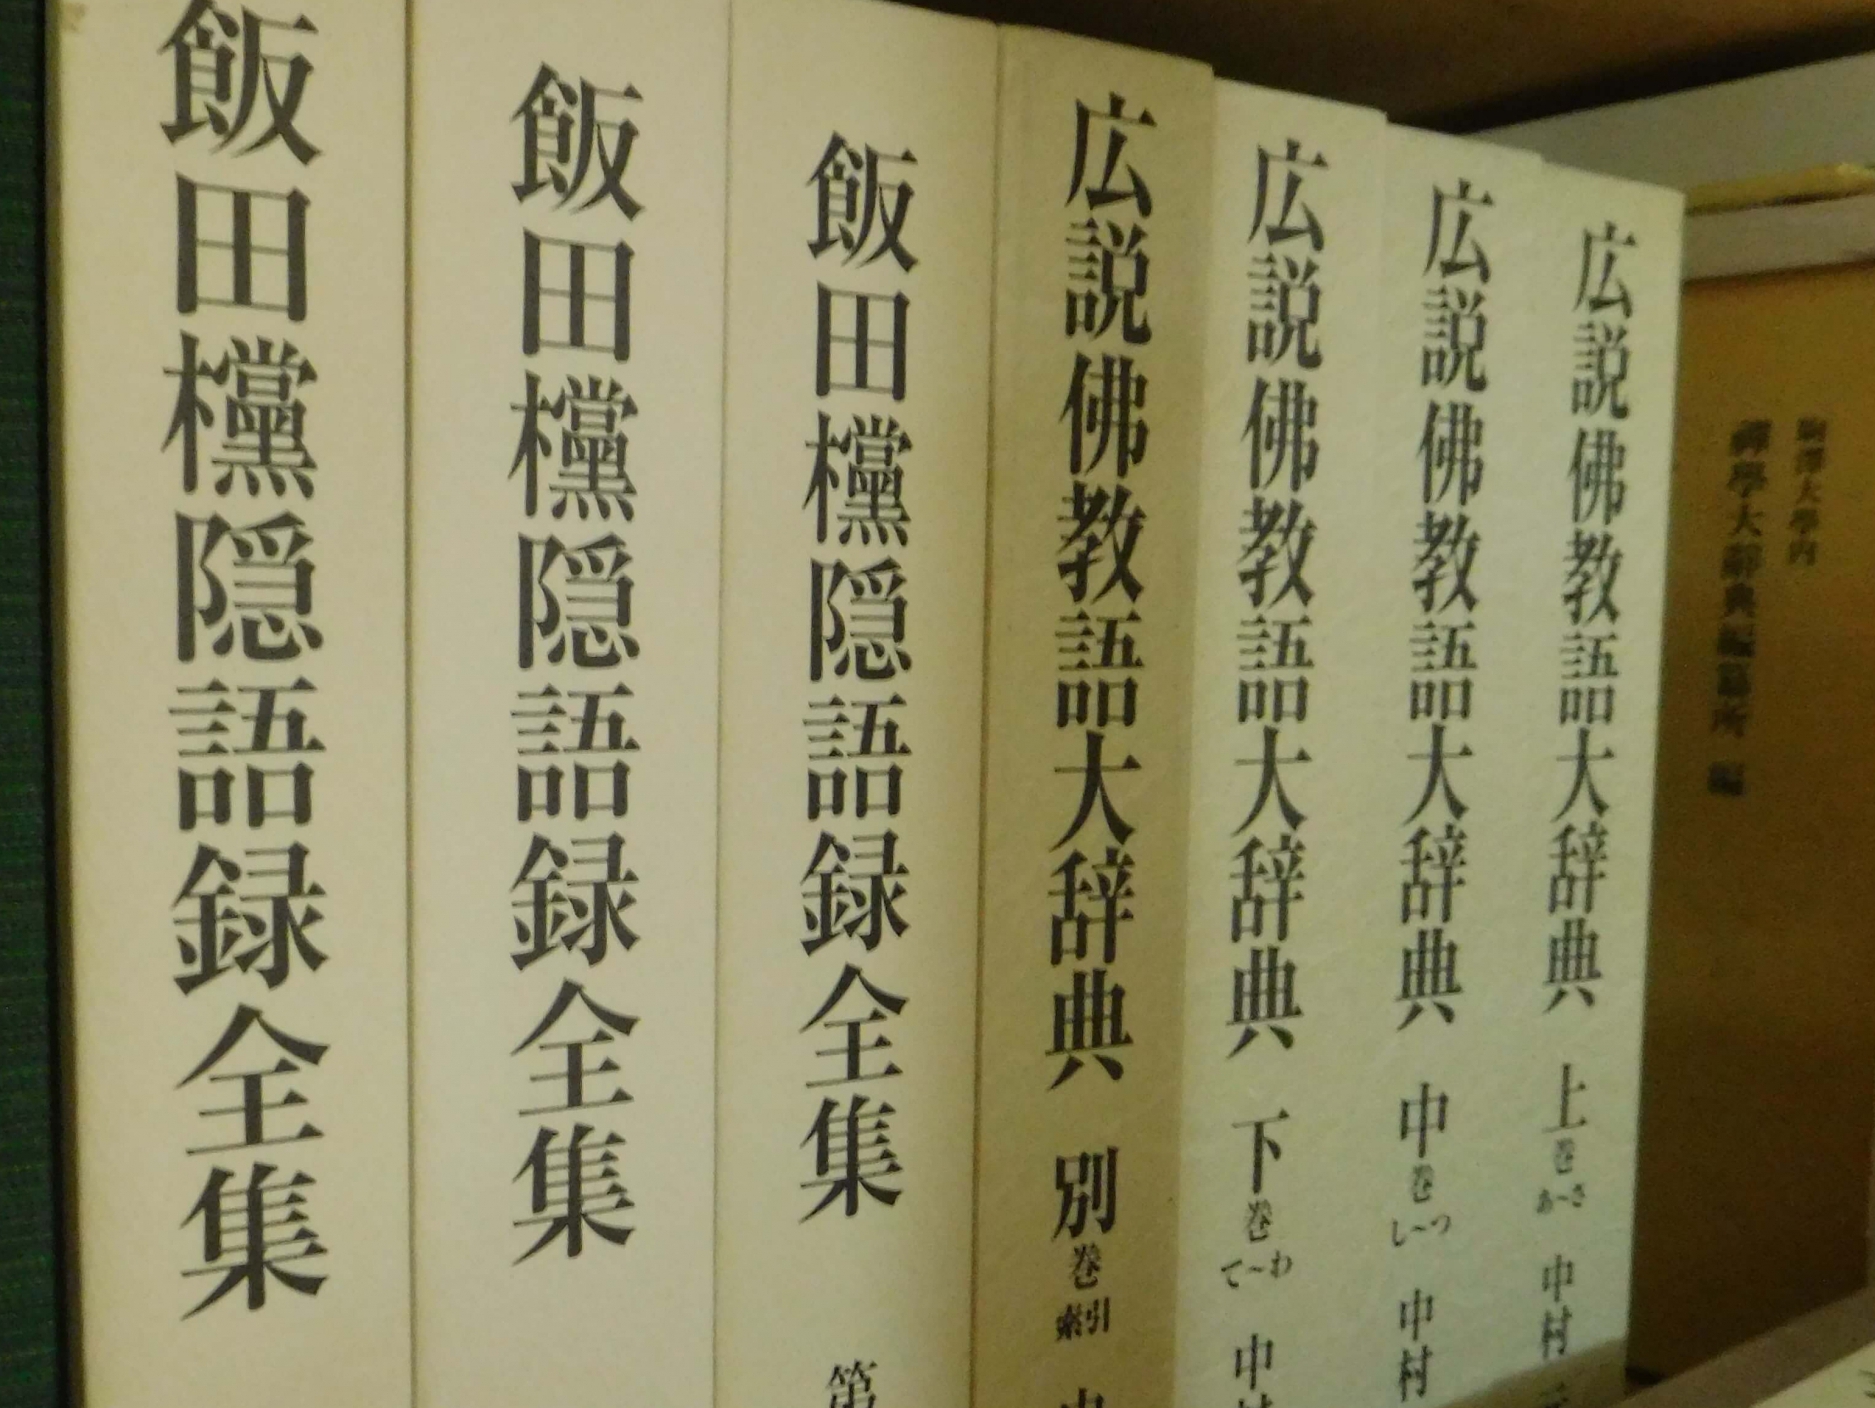 飯田欓隠語録全集
飯田欓隠語録全集
飯田欓隠語録全集 第
広説佛教語大辞典 別巻 索引 中
広説佛教語大辞典 下巻 て〜わ 中村
広説佛教語大辞典 中巻 し〜つ 中村
広説佛教語大辞典 上巻 あ〜さ 中村 元
禪學大辭典編纂所 編
駒澤大學内